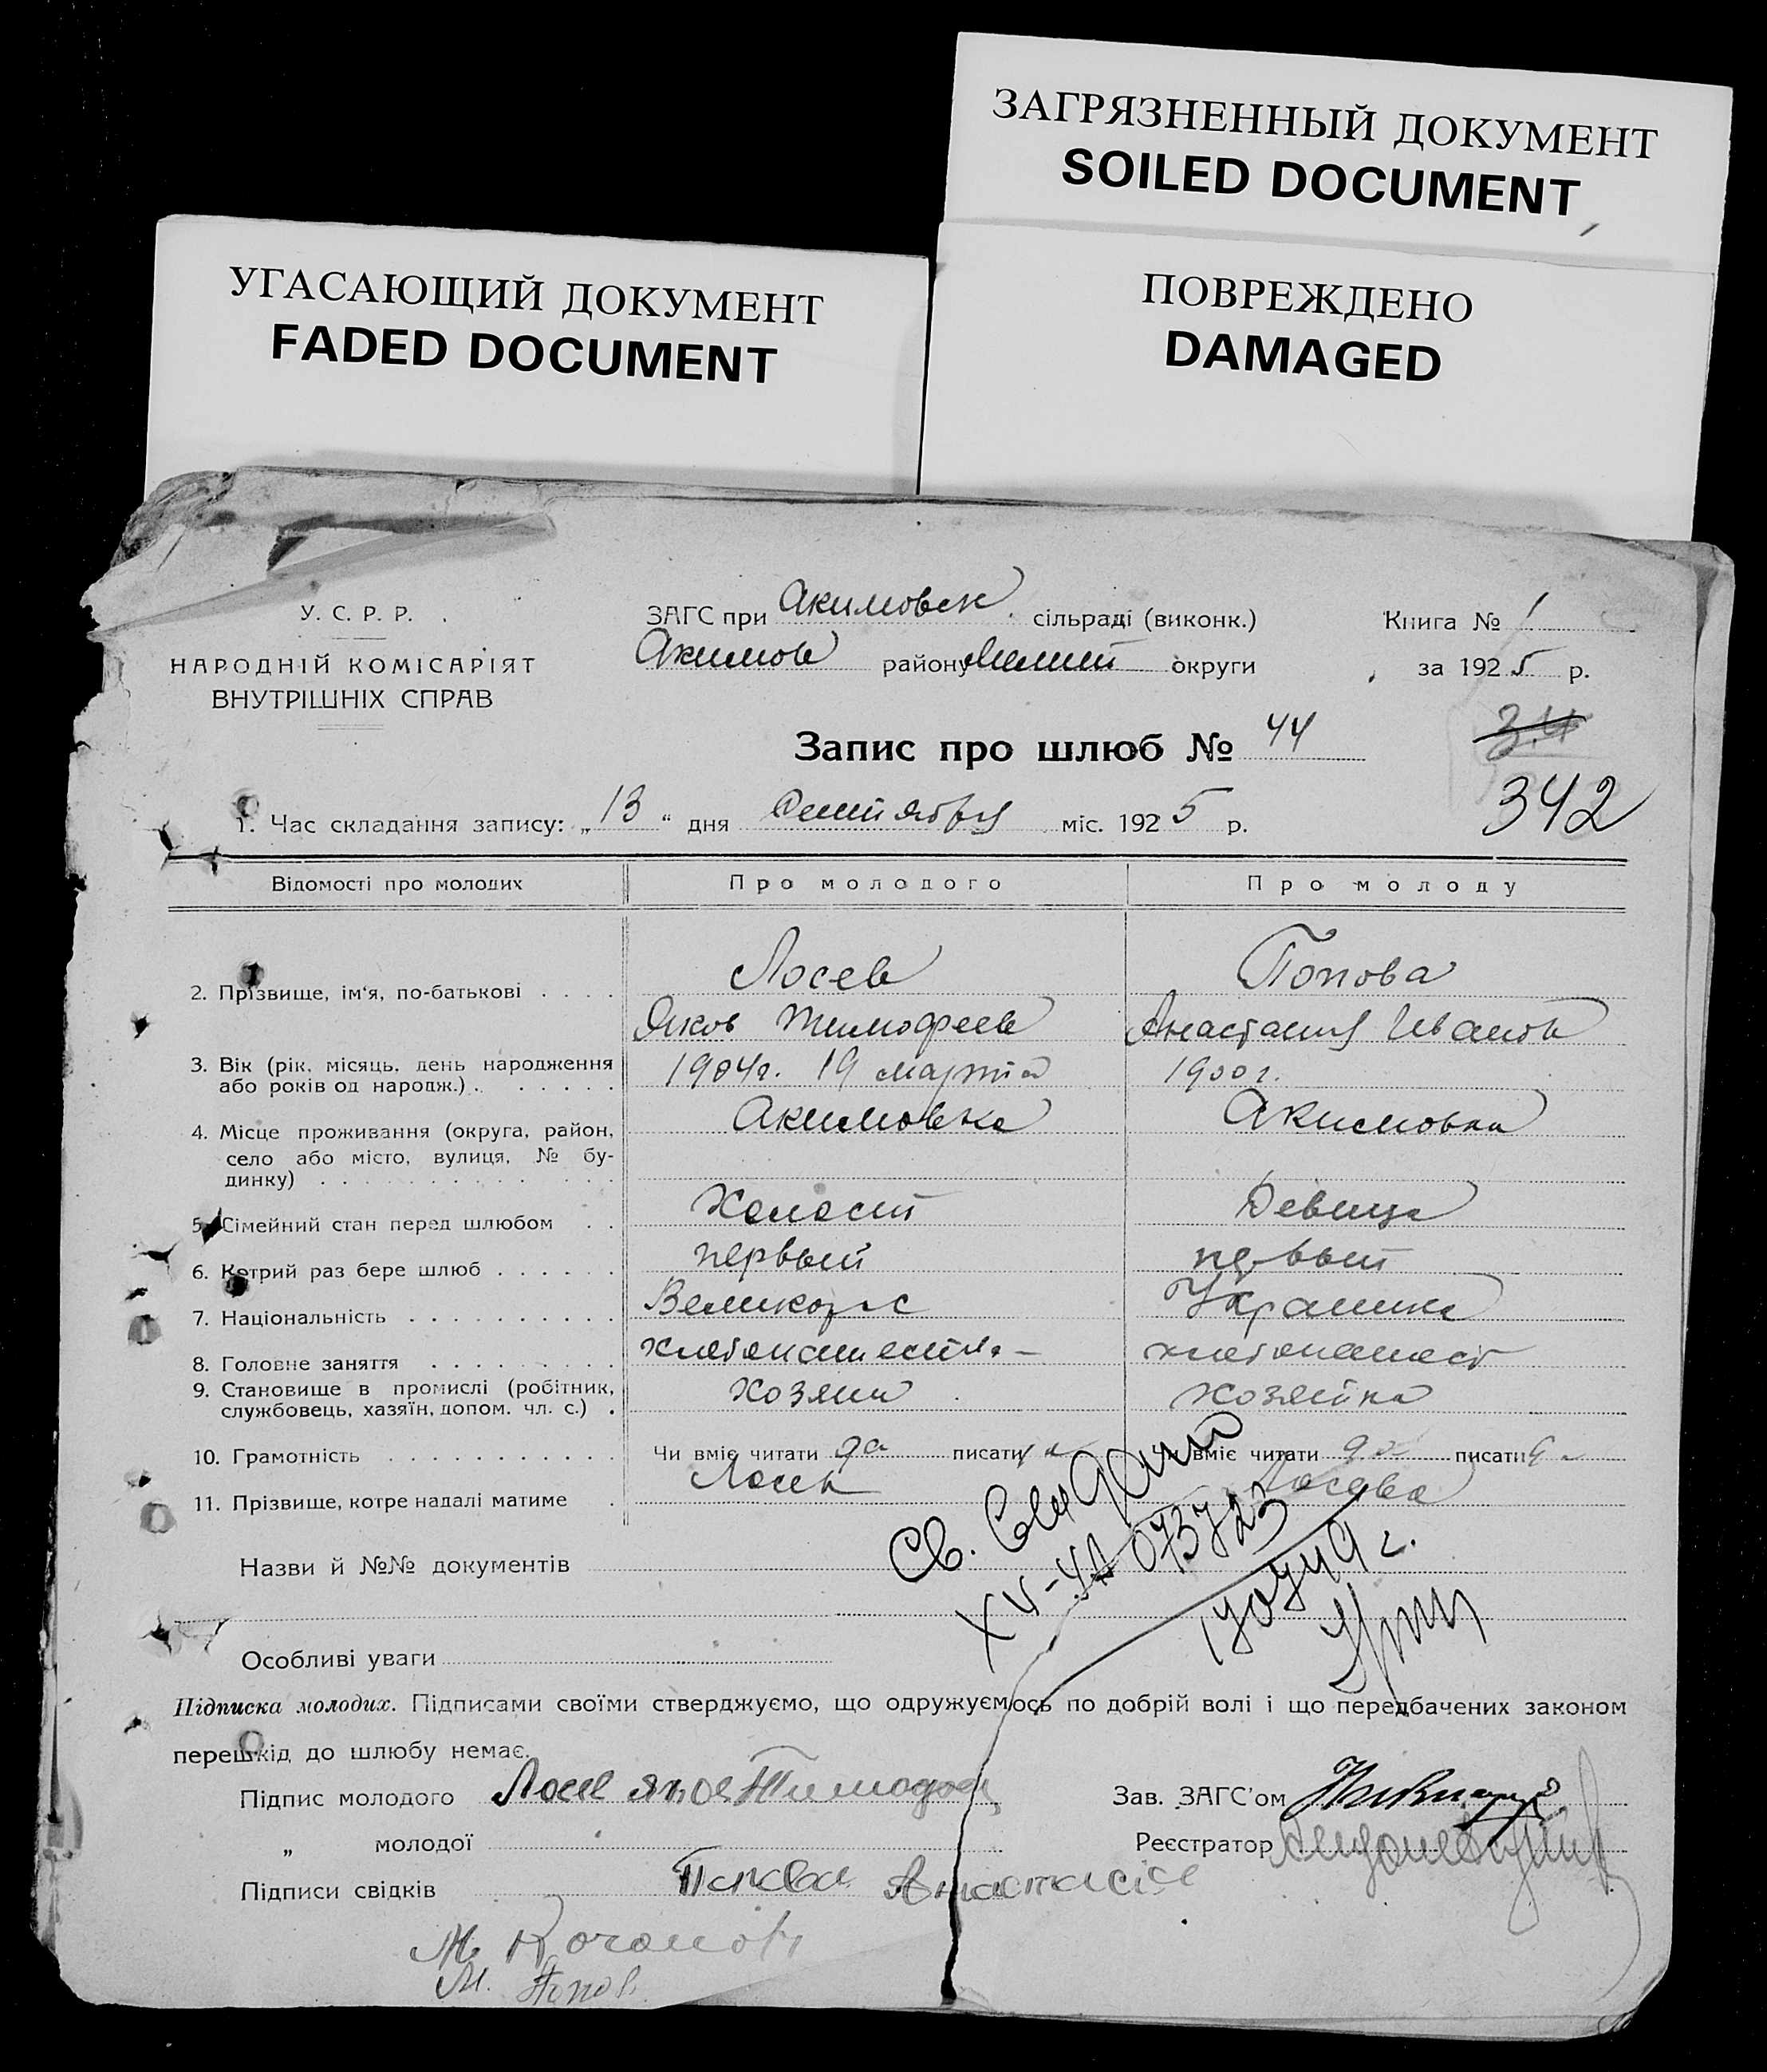 ЗАГРЯЗНЕННЫЙ ДОКУМЕНТ
SOILED DOCUMENT
УГАСАЮЩИЙ ДОКУМЕНТ
FADED DOCUMENT
ПОВРЕЖДЕНО
DAMAGED
У. С. Р. Р.
НАРОДНІЙ КОМІСАРІЯТ
ВНУТРІШНІХ СПРАВ
ЗАГС при Акимовск сільраді (виконк.)
Акимов району Мелит округи
Книга № 1
за 1925 р.
Запис про шлюб № 44
34
342
1. Час складання запису: „13“ дня Сентября міс. 1925 р.
Відомості про молодих Про молодого Про молоду
2. Прізвище, ім'я, по-батькові Лосев Попова
Яков Тимофеев Анастасия Иванов
3. Вік (рік, місяць, день народження або років од народж.) 1904г. 19 марта 1900г.
4. Місце проживання (округа, район, село або місто, вулиця, № будинку) Акимовка Акимовка
5. Сімейний стан перед шлюбом Холост Девица
6. Котрий раз бере шлюб первый первый
7. Національність Великорос Украинка
8. Головне заняття хлебопашеств. хлебопашест
9. Становище в промислі (робітник, службовець, хазяїн, допом. чл. с.) хозяин хозяйка
10. Грамотність Чи вміє читати да писати да Чи вміє читати да писати да
11. Прізвище, котре надалі матиме Лосев Лосева
Назви й №№ документів
Св.
XV-ЧА 073723
Особливі уваги
Підписка молодих. Підписами своїми стверджуємо, що одружуємось по добрій волі і що передбачених законом
перешкід до шлюбу немає.
Підпис молодого Лосев Яков
Зав. ЗАГС'ом
„ молодої
Реєстратор
Підписи свідків Попова Анастасія
М.
М. Попов